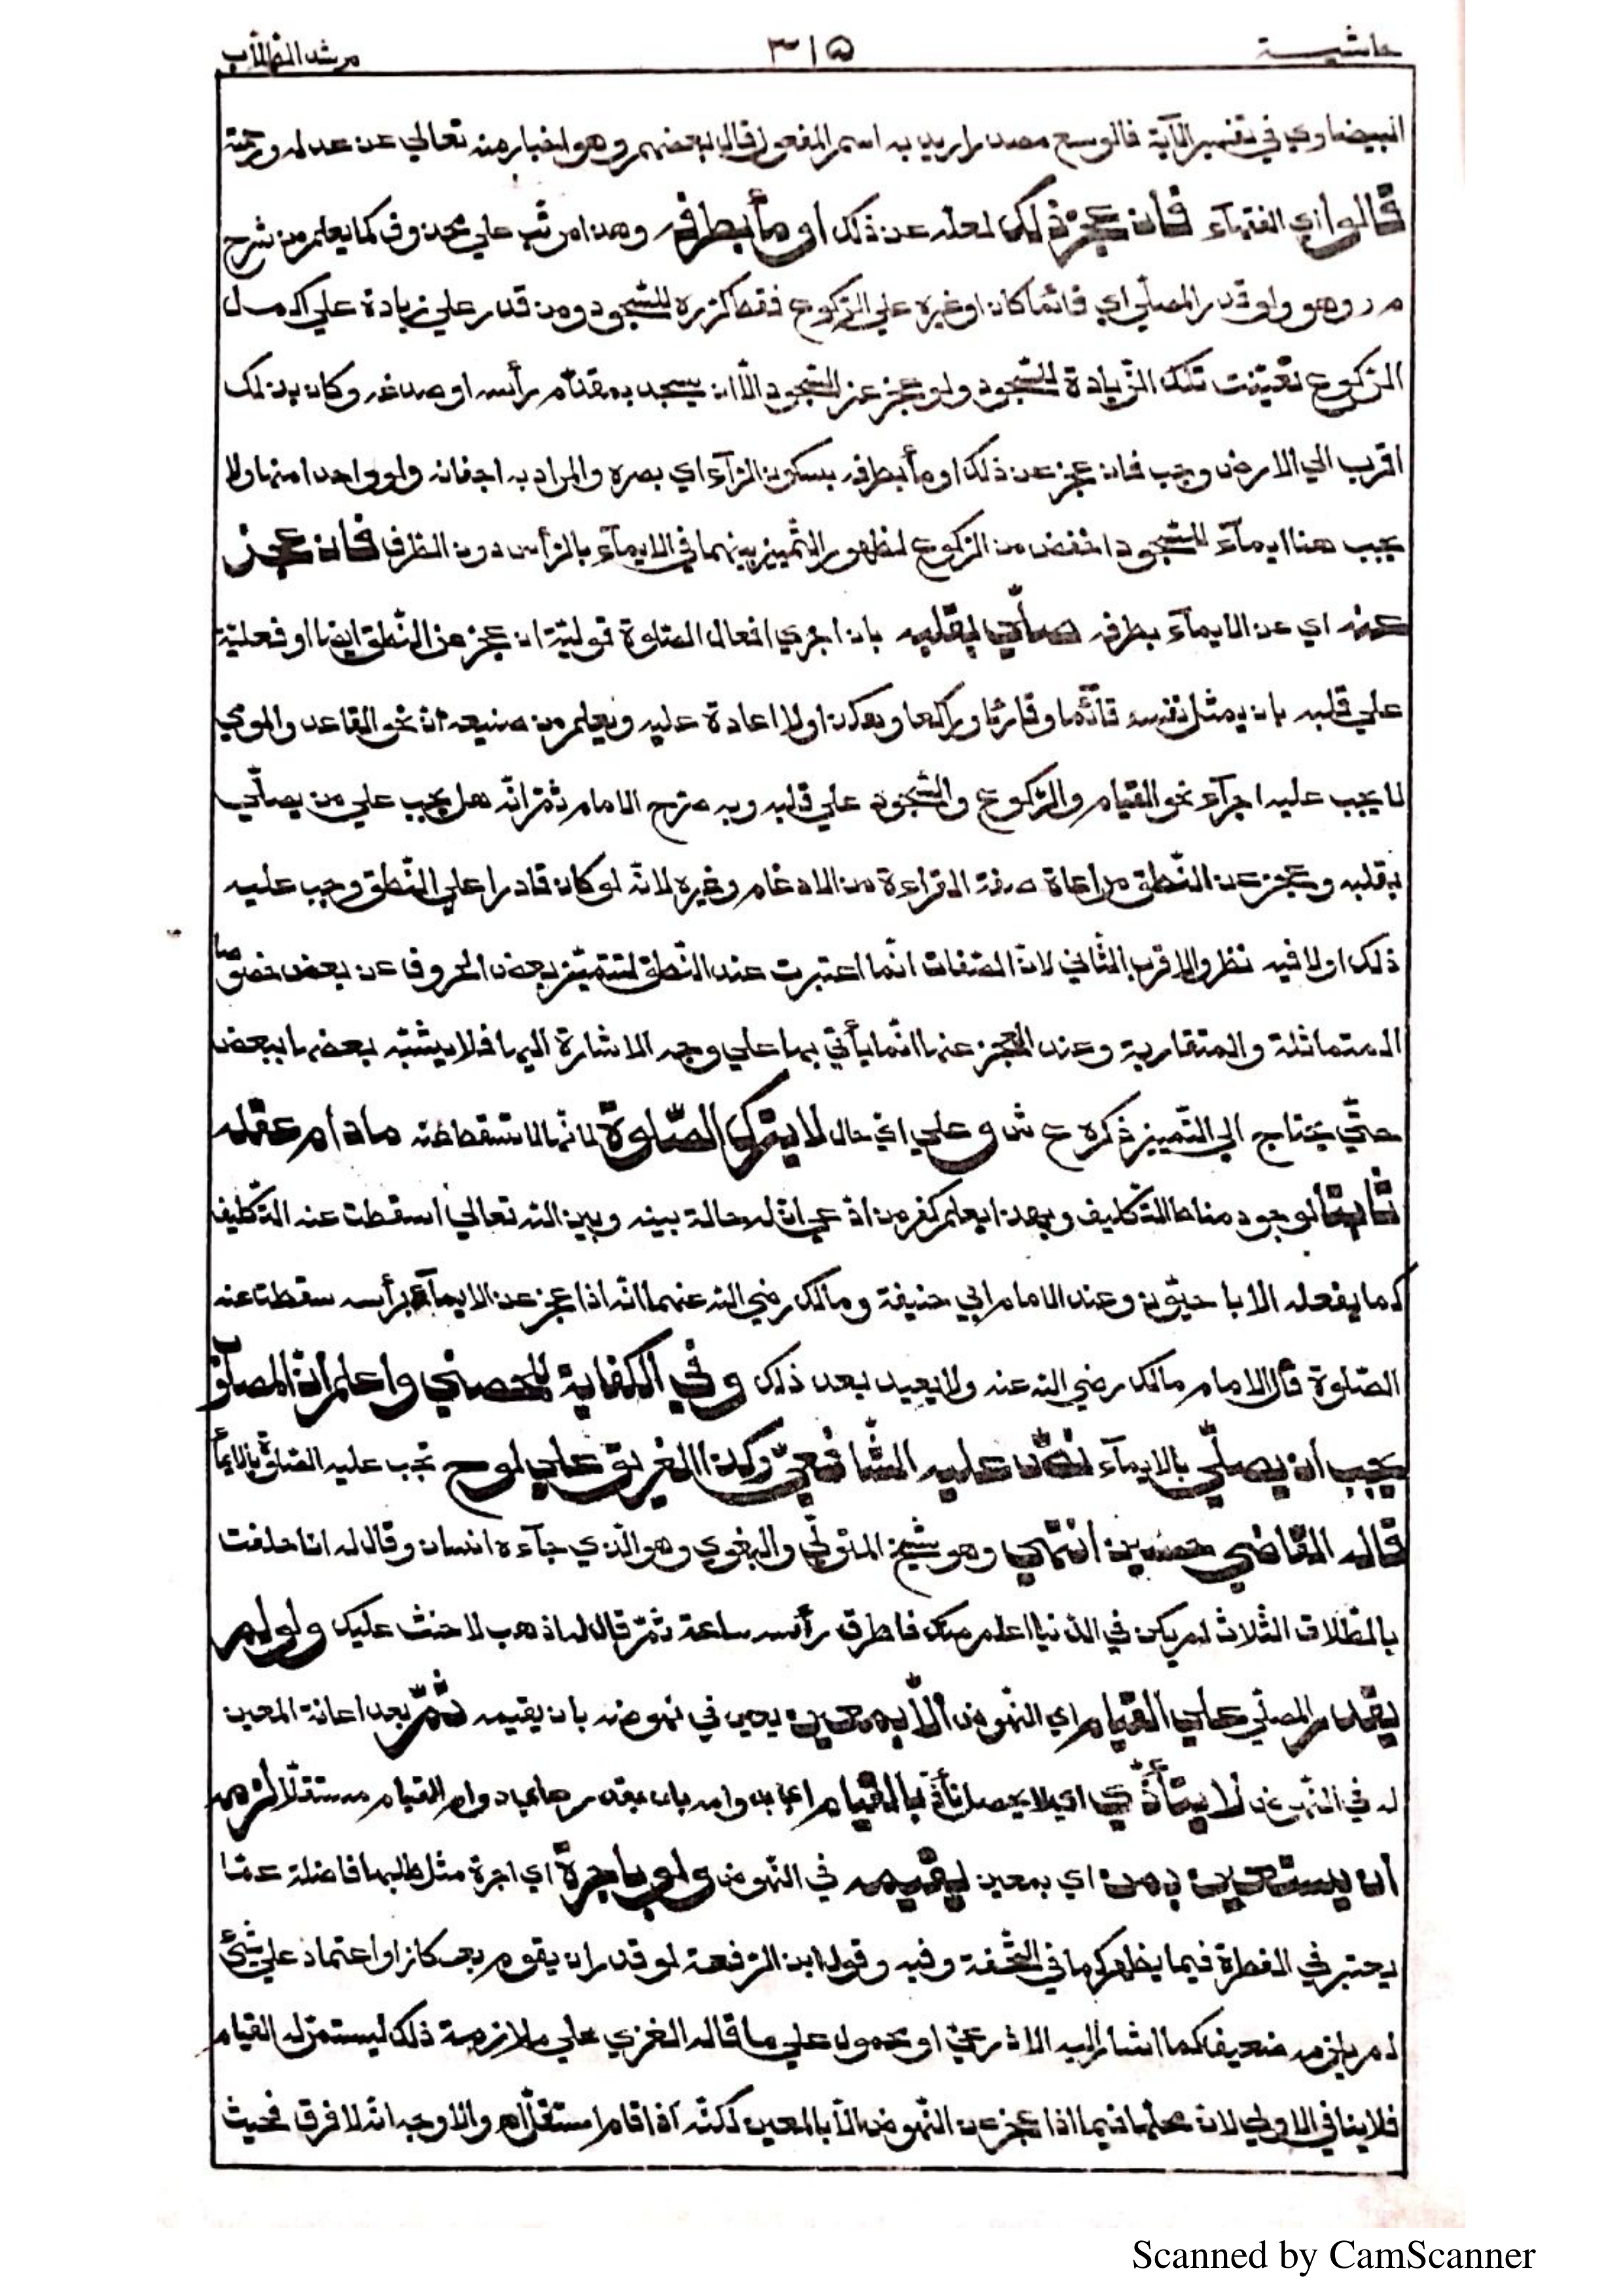 حاشية ٣١٥ مرشد الطلاب
البيضاوي في تفسير الآية فالوسع مصدر اريد به اسم المفعول قال بعضهم وهو اخبار منه تعالي عن عدله ورحمته
قالوا اي الفقهآء فان عجز ذلك لعله عن ذلك او مأ بطرفه وهذا مرتب علي محذوف كما يعلم من شرح
م ر وهو ولو قدر المصلّي اي قائما كان او غيره علي الرّكوع فقط كرّره للسّجود ومن قدر علي زيادة علي اكمل
الرّكوع تعيّنت تلك الزّيادة للسّجود ولو عجز عن السّجود الّا ان يسجد بمقدّم رأسه او صدغه وكان بذلك
اقرب الي الارض وجب فان عجز عن ذلك او مأ بطرفه بسكون الرّآء اي بصره والمراد به اجفانه ولو واحدا منها ولا
يجب هنا ايمآء للسّجود اخفض من الرّكوع لظهور التّمييز بينهما في الايمآء بالرّأس دون الطّرف فان عجز
عنه اي عن الايمآء بطرفه صلّي بقلبه بان اجري افعال الصّلوة قوليّة ان عجز عن النّطق ايضا او فعليّة
علي قلبه بان يمثل نفسه قآئما وقارئا وراكعا وهكذا ولا اعادة عليه ويعلم من صنيعه انّ نحو القاعد والمومي
لا يجب عليه اجرآء نحو القيام والرّكوع والسّجود علي قلبه وبه صرّح الامام ثمّ انّه هل يجب علي من يصلّي
بقلبه وعجز عن النّطق مراعاة صفة القراءة من الادغام وغيره لانّه لو كان قادرا علي النّطق وجب عليه
ذلك او لا فيه نظر والاقرب الثّاني لانّ الصّفات انّما اعتبرت عند النّطق لتتميّز بعض الحروف عن بعض خصوصا
المتماثلة والمتقاربة وعند العجز عنها انّما يأتي بها علي وجه الاشارة اليها فلا يشتبّه بعضها ببعض
حتّي يحتاج الي التّمييز ذكره ع ش وعلي ايّ حال لا يترك الصّلوة لانّها لا تسقط عنه مادام عقله
ثابتا لوجود مناط التّكليف وبهذا يعلم كفر من ادّعي انّ له حالة بينه وبين اللّه تعالي اسقطت عنه التّكليف
كما يفعله الاباحيّون وعند الامام ابي حنيفة ومالك رضي اللّه عنهما انّه اذا عجز عن الايمآء برأسه سقطت عنه
الصّلوة قال الامام مالك رضي اللّه عنه ولا يعيد بعد ذلك وفي الكفاية للحصني واعلم انّ المصلوب
يجب ان يصلّي بالايمآء نصّ عليه الشّافعيّ وكذا الغريق علي لوح تجب عليه الصّلوة بالايمآء
قاله القاضي حسين انتهي وهو شيخ المتولّي والبغوي وهو الّذي جآءه انسان وقال له انا حلفت
بالطّلاق الثّلاث لم يكن في الدّنيا اعلم منك فاطرق رأسه ساعة ثمّ قال له اذهب لا حنث عليك ولو لم
يقدر المصلّي علي القيام اي النّهوض الّا بمعين يعين في نهوضه بان يقيمه ثمّ بعد اعانة المعين
له في النّهوض لا يتأذّي اي لا يحصل تأذّ بالقيام اي بدوامه بان يقدر علي دوام القيام مستقلّا لزمه
ان يستعين بمن اي بمعين يقيمه في النّهوض ولو باجرة اي اجرة مثل طلبها فاضلة عمّا
يعتبر في الفطرة فيما يظهر كما في التّحفة وفيه وقول ابن الرّفعة لو قدر ان يقوم بعكاز او اعتماد علي شئ
لم يلزمه ضعيف كما اشار اليه الاذرعيّ او محمول علي ما قاله الغزي علي ملازمة ذلك ليستمرّ له القيام
فلا ينافي الاولي لانّ محلّها فيما اذا عجز عن النّهوض الّا بالمعين لكنّه اذا قام استقلّ اه والاوجه انّه لا فرق فحيث
Scanned by CamScanner